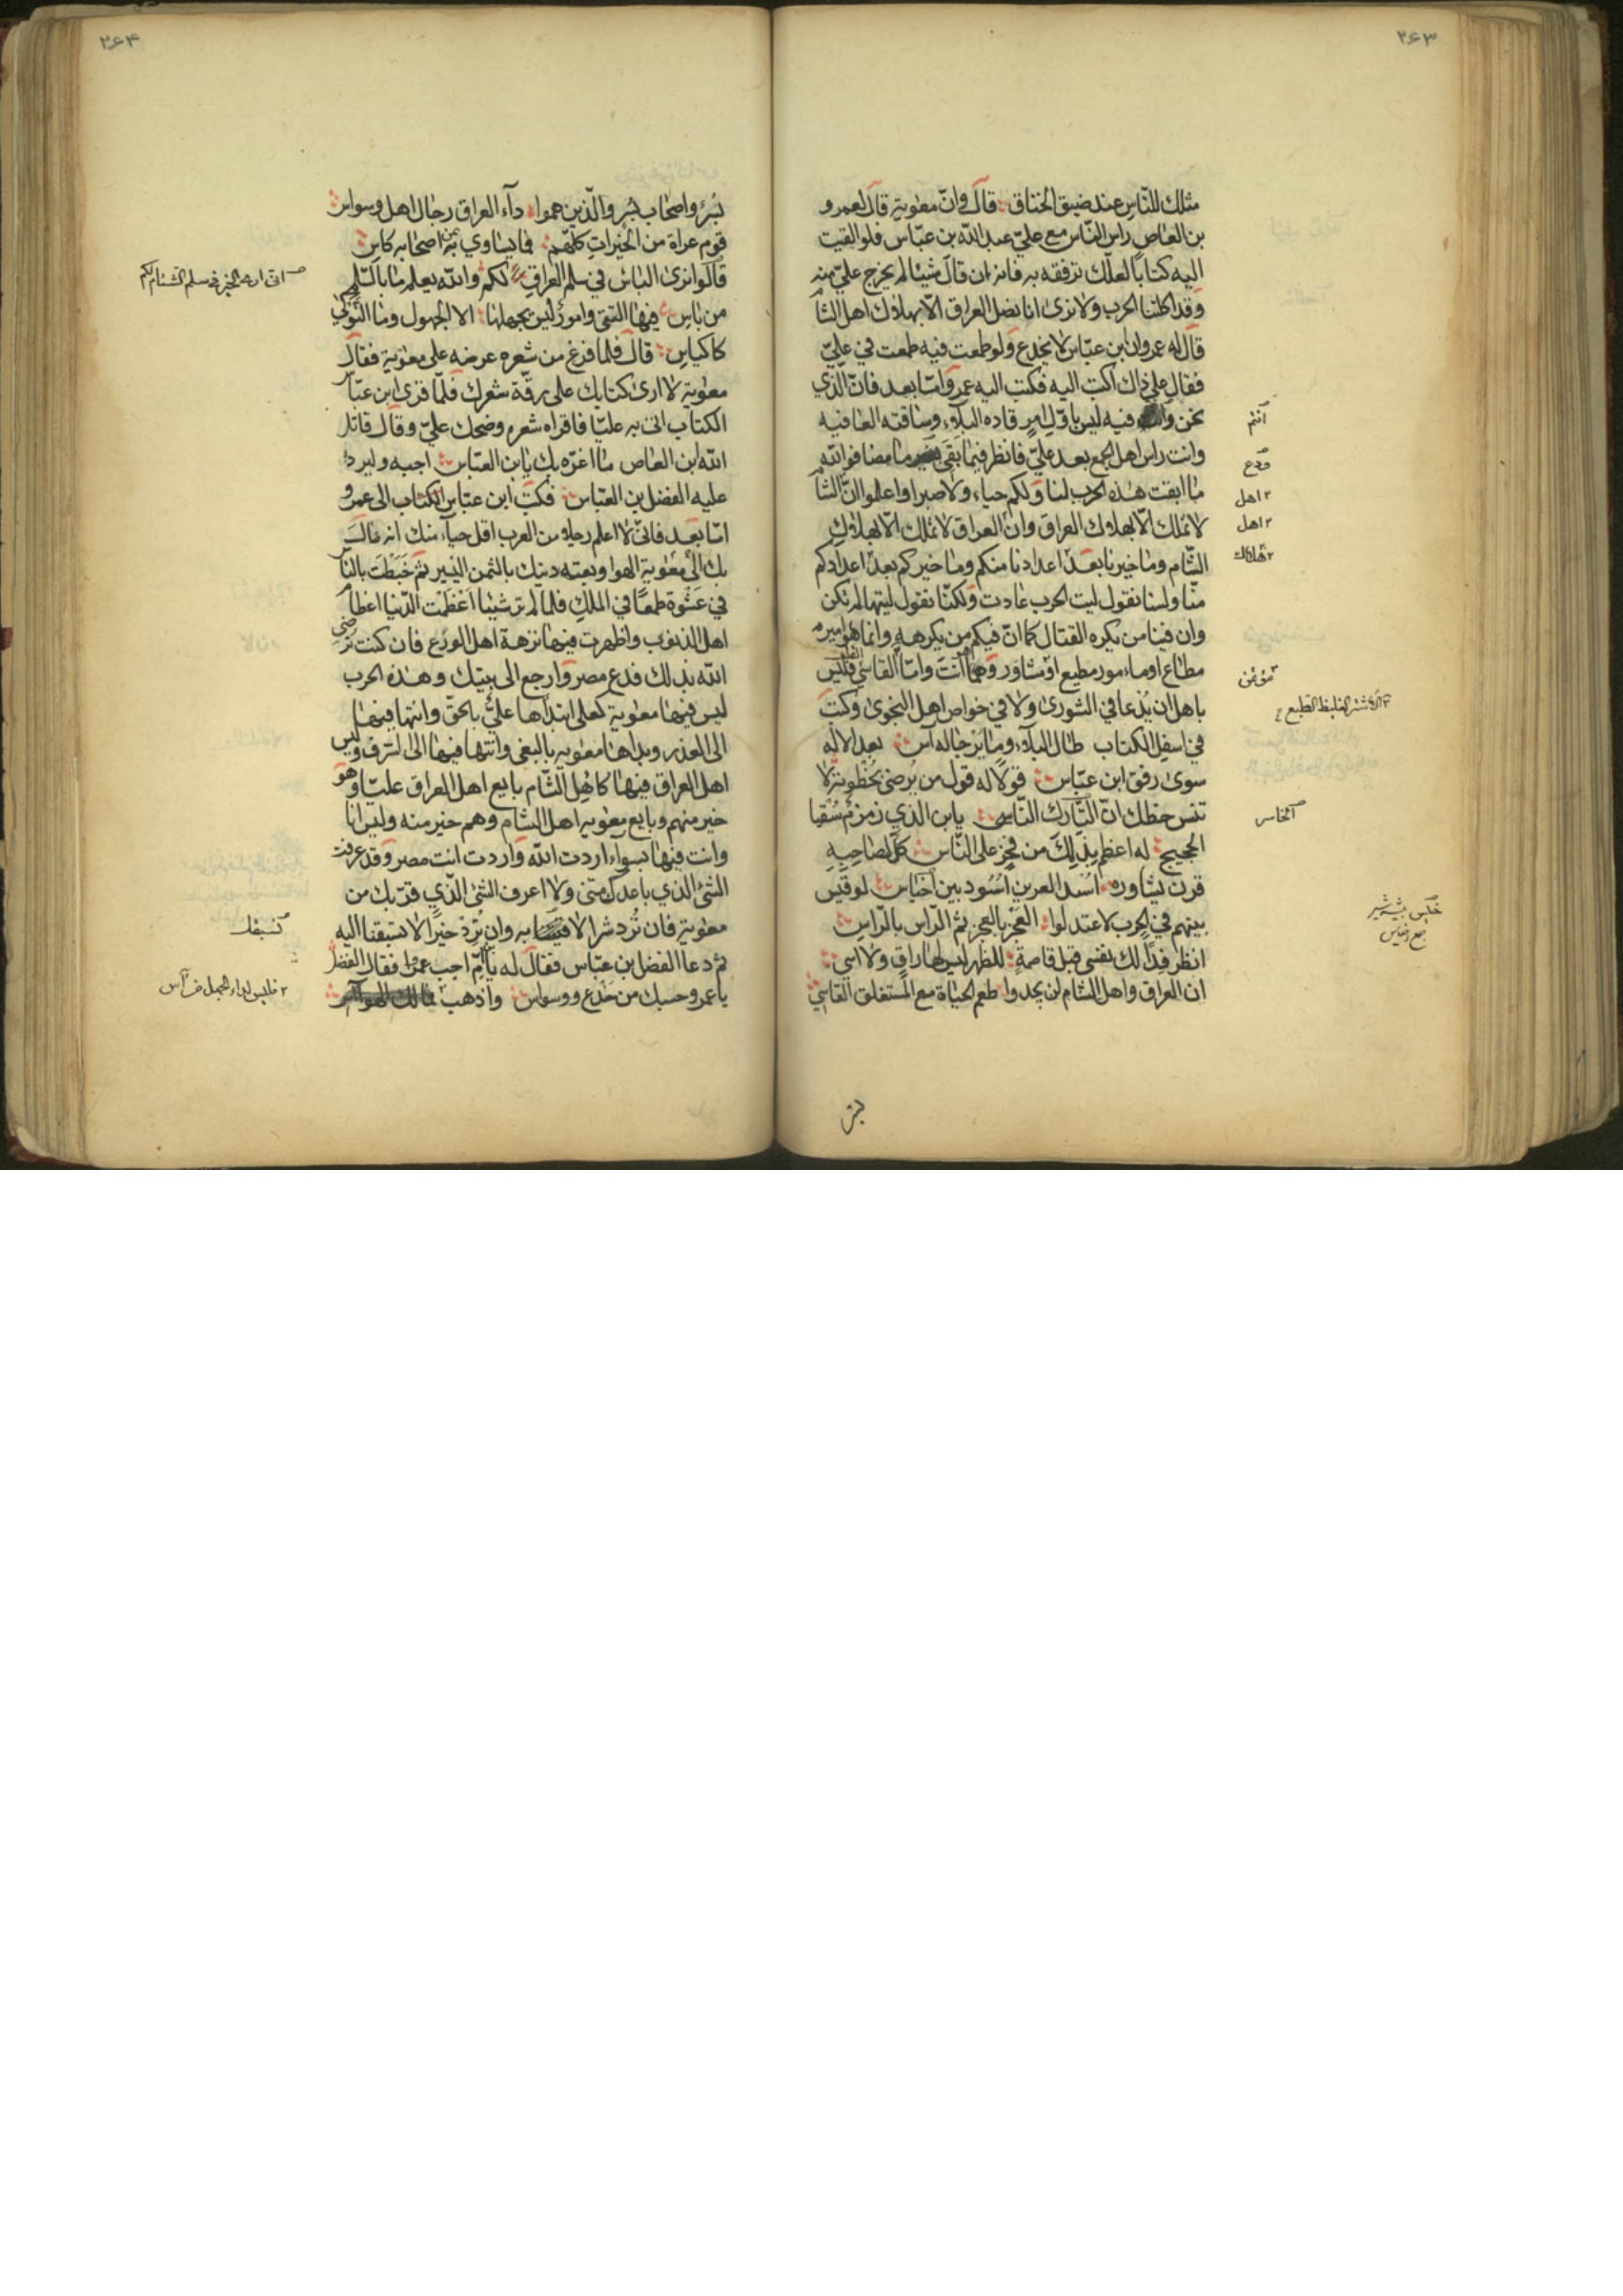 ۲۶۳
مثلك للناس عند ضيق الخناق قال وانّ معوية قال لعمرو
بن العاص راس الناس مع عليّ عبد الله بن عبّاس فلو القيت
اليه كتابا لعلّك ترفقه به فانه ان قال شيئا لم يخرج عليّ منه
وقد اكلتنا الحرب ولا نرى انا نصل العراق الّا بهلاك اهل الشا
قال له عمرو ان ابن عبّاس لا يخدع ولو طمعت فيه طمعت في عليّ
فقال على ذاك اكتب اليه فكتب اليه عمرو امّا بعد فانّ الّذي
نحن و فيه ليس باوّل امر قاده البلاء وساقته العافيه
وانت راس اهل الجمع بعد عليّ فانظر فيما بقى ما مضا فوالله
ما ابقت هذه الحرب لنا ولكم حياء ولا صبرا واعلموا انّ الشا
لا تملك الّا بهلاك العراق وانّ العراق لا تملك الّا بهلاك
الشام وما خيرنا بعد اعدادنا منكم وما خيركم بعد اعدادكم
منّا ولسنا نقول ليت الحرب عادت ولكنّا نقول ليتها لم تكن
وان فينا من يكره القتال كما انّ فيكم من يكرهه وانما هو امير
مطاع او مامور مطيع او مشاور وهو انت وامّا القاسي فليس
باهل ان يدعا في الشورى ولا في خواص اهل النجوى وكتب
في اسفل الكتاب طال البلاء وما يرجا له آس بعد الاله
سوى رفق ابن عبّاس قولا له قول من يرضى بحظوته لا
تنس حظك انّ التارك الناسي يابن الذي زمزم سقيا
الحجيج له اعظم بذلك من فخر على الناس كلّ لصاحبه
قرن يشاوره اسد العرين اسود بين اخياس لو قيس
بينهم في الحرب لاعتدلوا العجز بالعجز ثم الراس بالراس
انظر فدا لك نفسي قبل قاصمة للظهر ليس لها راق ولا اسي
ان العراق واهل الشام لن يجدوا طعم الحياة مع المستغلق القاسي
انتم
ودع
اهل
اهل
هلاك
مؤتمن
الاشتر الغليظ الطبع
الخاسر
بسر
۲۶۴
بسر واصحاب بسر والّذين هموا دآء العراق رجال اهل وسواس
قوم عراة من الخيرات كلّهم فما يساوي به اصحابه كاس
قالوا نرى الباس في سلم العراق لكم والله يعلم ما بالسلم
من باس فيها التقى وامور ليس يجهلها الا الجهول وما النوكى
كاكياس قال فلما فرغ من شعره عرضه على معوية فقال
معوية لا ارى كتابك على رقّة شعرك فلمّا قرى ابن عبّا
الكتاب اتى به عليّا فاقراه شعره وضحك عليّ وقال قاتل
الله ابن العاص ما اغرّه بك يابن العبّاس اجبه وليرد
عليه الفضل بن العبّاس فكتب ابن عبّاس الكتاب الى عمرو
امّا بعد فانّى لا اعلم رجلا من العرب اقل حياء منك انه مال
بك الى معوية الهوا وبعته دينك بالثمن اليسير ثم خبطت بالنا
في عشوة طمعا في الملك فلمّا لم تر شيئا اعظمت الدنيا اعظا
اهل الذنوب واظهرت فيها نزهة اهل الورع فان كنت ترضى
الله بذلك فدع مصر وارجع الى بيتك وهذه الحرب
ليس فيها معوية كعلى ابتداها عليّ بالحقّ وانتها فيها
الى العذر وبداها معويه بالبغي وانتها فيها الى السرف وليس
اهل العراق فيها كاهل الشام بايع اهل العراق عليّا وهو
خير منهم وبايع معويه اهل الشام وهم خير منه وليس انا
وانت فيها بسواء اردت الله واردت انت مصر وقد عرفت
الشئ الذي باعدك منّى ولا اعرف الشئ الّذي قرّبك من
معوية فان ترد شرا لا به وان ترد خيرا لا تسبقنا اليه
ثم دعا الفضل بن عبّاس فقال له يابن امّ اجب عمروا فقال الفضل
يا عمرو حسبك من خدع ووسواس واذهب
انى ارى الخير فى سلم الشام لكم
نسبقك
فليس لداء الجهل من آس